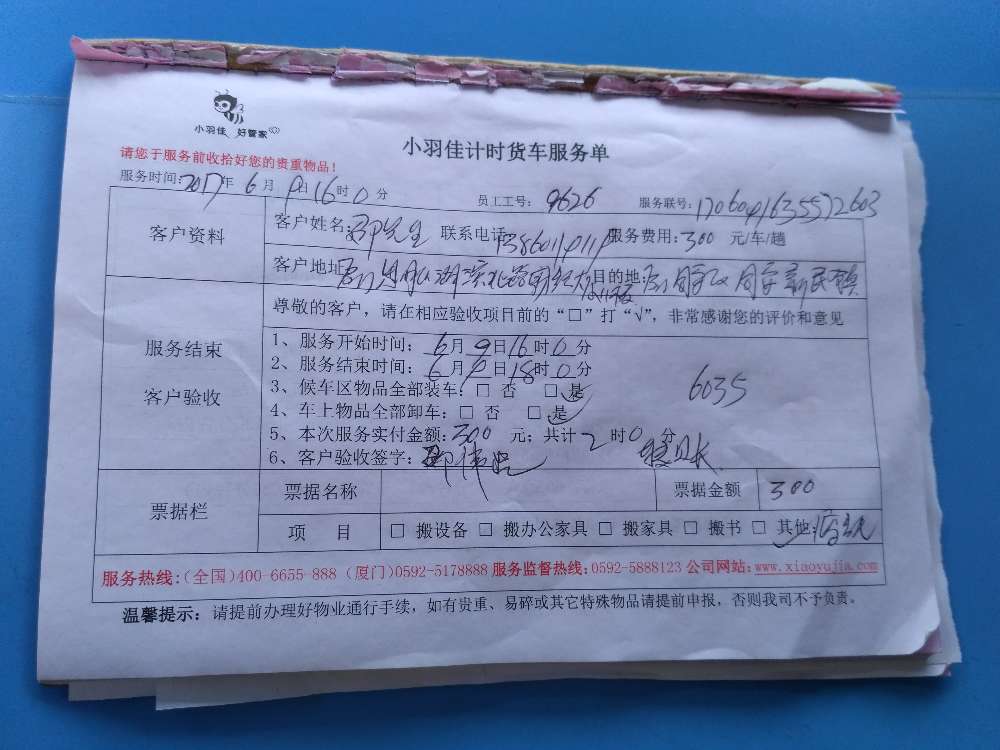 小羽佳 好管家
小羽佳计时货车服务单
请您于服务前收拾好您的贵重物品！
服务时间：2017年6月9日16时0分 员工工号：9626 服务联号：
客户资料
客户姓名：邵先生 联系电话 服务费用：300 元/车/趟
客户地址 湖滨北路 目的地：
尊敬的客户，请在相应验收项目前的“□”打“√”，非常感谢您的评价和意见
服务结束
客户验收
1、服务开始时间：6月9日16时0分
2、服务结束时间：6月9日18时0分
3、候车区物品全部装车：□ 否 □ 是
4、车上物品全部卸车：□ 否 □ 是
6035
5、本次服务实付金额：300 元；共计2时0分
6、客户验收签字：
票据栏
票据名称 票据金额 300
项 目 □ 搬设备 □ 搬办公家具 □ 搬家具 □ 搬书 □ 其他：
服务热线：(全国)400-6655-888 (厦门)0592-5178888 服务监督热线：0592-5888123 公司网站：www.xiaoyujia.com
温馨提示：请提前办理好物业通行手续，如有贵重、易碎或其它特殊物品请提前申报，否则我司不予负责。